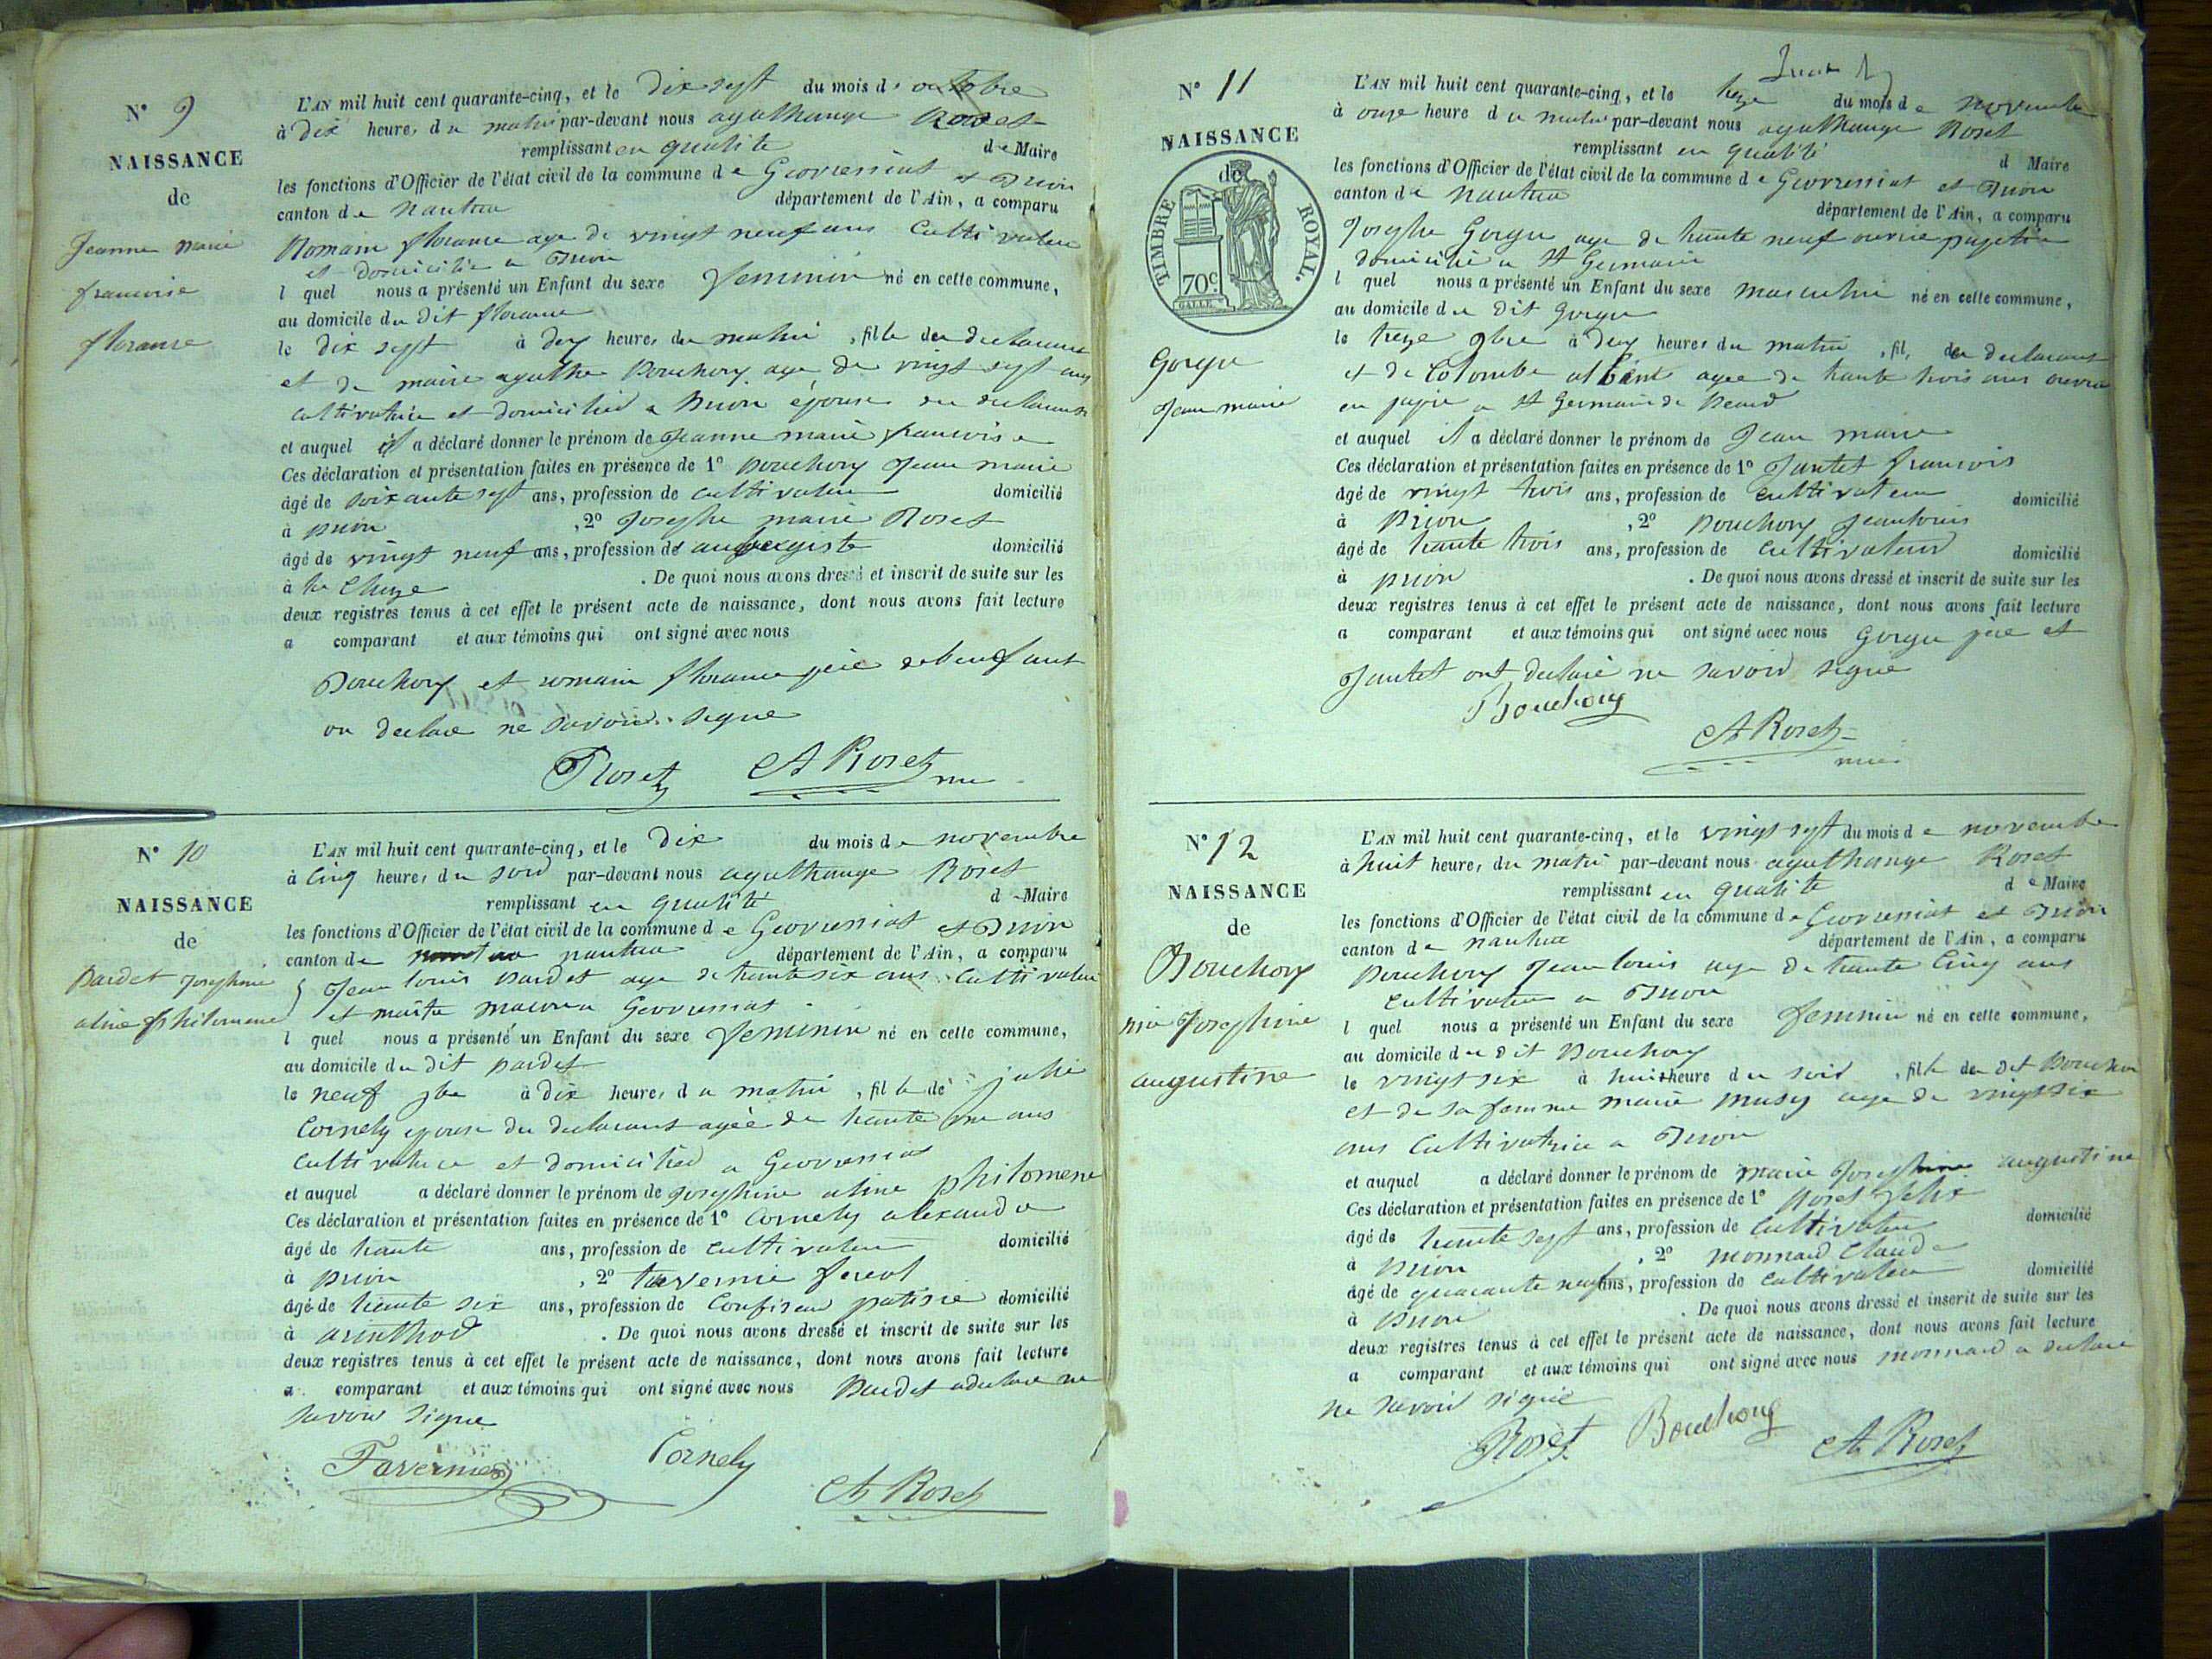 N° 9
NAISSANCE
de
Jeanne marie
francoise
florance
L'AN mil huit cent quarante-cinq, et le Dix sept du mois d' octobre
à Dix heures du matin par-devant nous agathange Roset
remplissant en qualité de Maire
les fonctions d'Officier de l'état civil de la commune de Geovressiat et Prion
canton de Nantua département de l'Ain, a comparu
Romain florance age de vingt neuf ans Cultivateur
et domicilié a Prion
l quel nous a présenté un Enfant du sexe feminin né en cette commune,
au domicile du dit florance
le dix sept à deux heures du matin, fille du declarant
et de marie agathe Bouchory age de vingt sept ans
cultivatrice et domicilied a Prion épouse du declarant
et auquel il a déclaré donner le prénom de Jeanne marie francoise
Ces déclaration et présentation faites en présence de 1° Bouchory Jean marie
âgé de soixante sept ans, profession de cultivateur domicilié
à prion, 2° Josephe marie Roset
âgé de vingt neuf ans, profession de aubergiste domicilié
à la Cluze. De quoi nous avons dressé et inscrit de suite sur les
deux registres tenus à cet effet le présent acte de naissance, dont nous avons fait lecture
a comparant et aux témoins qui ont signé avec nous
Bouchory et romain florance père de l'enfant
on declare ne savoir signe
Roset A Roset
N° 10
NAISSANCE
de
Bardet Josephine
aline philomene
L'AN mil huit cent quarante-cinq, et le Dix du mois de novembre
à Cinq heures du soir par-devant nous agathange Roset
remplissant en qualité d Maire
les fonctions d'Officier de l'état civil de la commune de Geovressiat et Prion
canton de nantua département de l'Ain, a comparu
Jean louis Bardet age de trente six ans Cultivateur
et maitre macon a Geovressiat
l quel nous a présenté un Enfant du sexe feminin né en cette commune,
au domicile du dit Bardet
le neuf 9bre à Dix heures du matin, fille de julie
Cornely epouse du declarant agée de trente une ans
Cultivatrice et domicilied a Geovressiat
et auquel a déclaré donner le prénom de Josephine aline philomene
Ces déclaration et présentation faites en présence de 1° Cornely alexandre
âgé de trente ans, profession de cultivateur domicilié
à prion, 2° tavernie fereol
âgé de trente six ans, profession de Confiseur patisie domicilié
à arinthod. De quoi nous avons dressé et inscrit de suite sur les
deux registres tenus à cet effet le présent acte de naissance, dont nous avons fait lecture
a comparant et aux témoins qui ont signé avec nous Bardet a declare ne
savoir signe
Tavernier Cornely
A Roset
N° 11
NAISSANCE
de
TIMBRE ROYAL.
70c.
Gorgu
Jean marie
L'AN mil huit cent quarante-cinq, et le treze du mois de novembre
à onze heure du matin par-devant nous agathange Roset
remplissant en qualité d Maire
les fonctions d'Officier de l'état civil de la commune de Geovressiat et Prion
canton de nantua département de l'Ain, a comparu
Josephe Gorgu age de trente neuf ouvrie papetie
domicilié a St Germain
l quel nous a présenté un Enfant du sexe masculin né en cette commune,
au domicile du dit Gorgu
le treze 9bre à deux heures du matin, fils du declarant
et de Colombe agee de trente trois ans
en papie a St Germain de Beard
et auquel il a déclaré donner le prénom de Jean marie
Ces déclaration et présentation faites en présence de 1° Jantet francois
âgé de vingt trois ans, profession de cultivateur domicilié
à Prion, 2° Bouchory Jean louis
âgé de trente trois ans, profession de cultivateur domicilié
à prion. De quoi nous avons dressé et inscrit de suite sur les
deux registres tenus à cet effet le présent acte de naissance, dont nous avons fait lecture
a comparant et aux témoins qui ont signé avec nous Gorgu père et
Jantet ont declaré ne savoir signe
Bouchory
A Roset
N° 12
NAISSANCE
de
Bouchory
Josephine
augustine
L'AN mil huit cent quarante-cinq, et le vingt sept du mois de novembre
à huit heures du matin par-devant nous agathange Roset
remplissant en qualité de Maire
les fonctions d'Officier de l'état civil de la commune de Geovressiat et Prion
canton de nantua département de l'Ain, a comparu
Bouchory Jean louis age de trente Cinq ans
Cultivateur a Prion
l quel nous a présenté un Enfant du sexe feminin né en cette commune,
au domicile du dit Bouchory
le vingt six à huit heure du soir, fille du dit Bouchory
et de sa femme marie musy age de vingt six
ans Cultivatrice a Prion
et auquel a déclaré donner le prénom de marie Josephine augustine
Ces déclaration et présentation faites en présence de 1° Roset felix
âgé de trente sept ans, profession de Cultivateur domicilié
à prion, 2° monnard Claude
âgé de quarante neuf ans, profession de Cultivateur domicilié
à prion. De quoi nous avons dressé et inscrit de suite sur les
deux registres tenus à cet effet le présent acte de naissance, dont nous avons fait lecture
a comparant et aux témoins qui ont signé avec nous monnard a declaré
ne savoir signé
Roset Bouchony A Roset